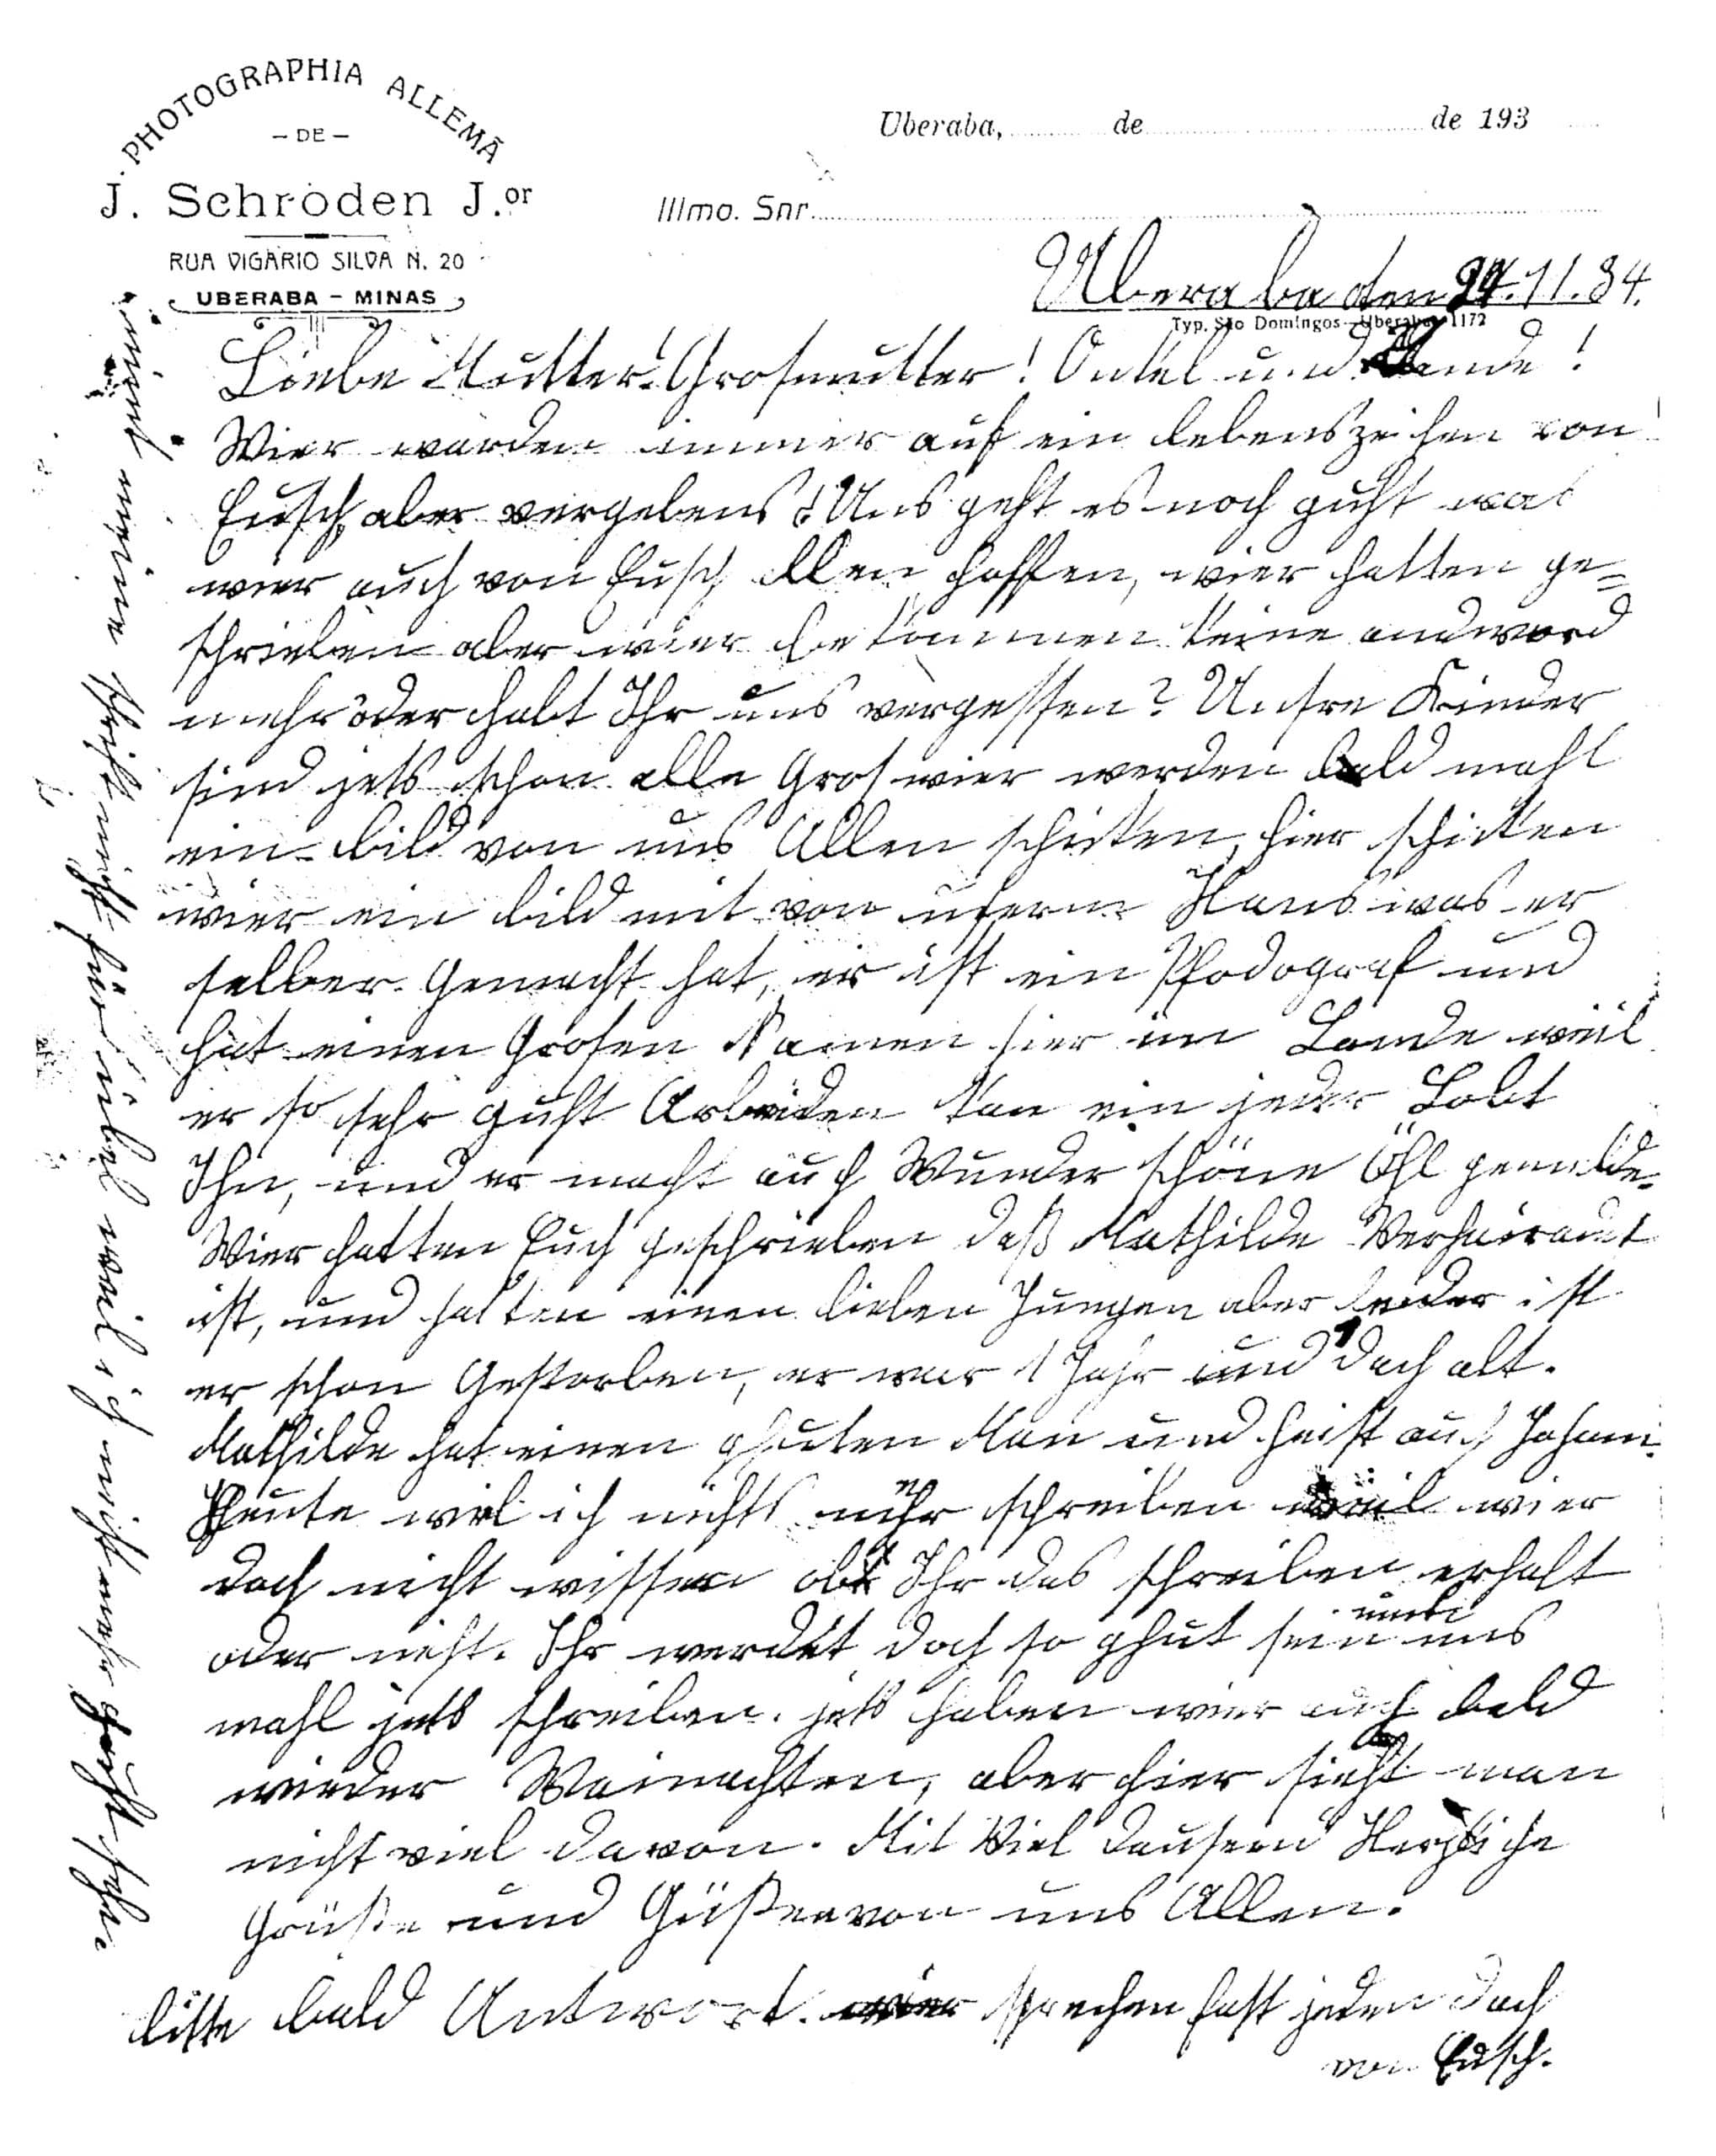 PHOTOGRAPHIA ALLEMÃ
– DE –
J. Schröden J.or
RUA VIGARIO SILVA N. 20
UBERABA – MINAS
Uberaba, de de 193
Illmo. Snr.
Uberaba den 24.11.34.
Typ. São Domingos – Uberaba 1172
Liebe Mutter! Grosmutter! Onkel und Tande!
Wier warden immer auf ein lebenszeihen von
Eusch, aber vergebens! Uns geht es noch guht was
wier auch von Eusch Allen hoffen, wier hatten ge=
schrieben aber wier bekommen keine andword
mehr oder habt Ihr uns vergessen? Unsre Kinder
sind jets schon alle Gros wier werden bald mahl
ein bild von uns Allen schicken, hier schicken
wier ein bild mit von unserm Hans was er
selber Gemacht hat, er ist ein Phodograf und
hat einen Grosen Namen hier im Lande weil
er so sehr guht Arbeiden kan ein jeder Lobt
Ihn, und er macht auch Wunder schöne Öhl gemälde.
Wier hatten Euch geschrieben daß Mathilde Verheiradet
ist, und hatten einen lieben Jungen aber leider ist
er schon Gestorben, er war 1 Jahr und 1 Dach alt.
Mathilde hat einen ghuten Man und heist auch Johann.
Heute wil ich nichts mehr schreiben weil wier
doch nicht wissen ob Ihr das schreiben erhalt
oder nicht. Ihr werdet doch so ghut sein und uns
mahl jets schreiben. jets haben wier auch bald
wieder Weinachten, aber hier sieht man
nicht viel davon. Mit Viel Dausend Herzliche
Grüße und Güßen von uns Allen.
bitte bald Antwort. wier sprechen fast jeden Dach
von Eusch.
nimt meine schrift nicht für übel weil ich nicht mehr guht sehe